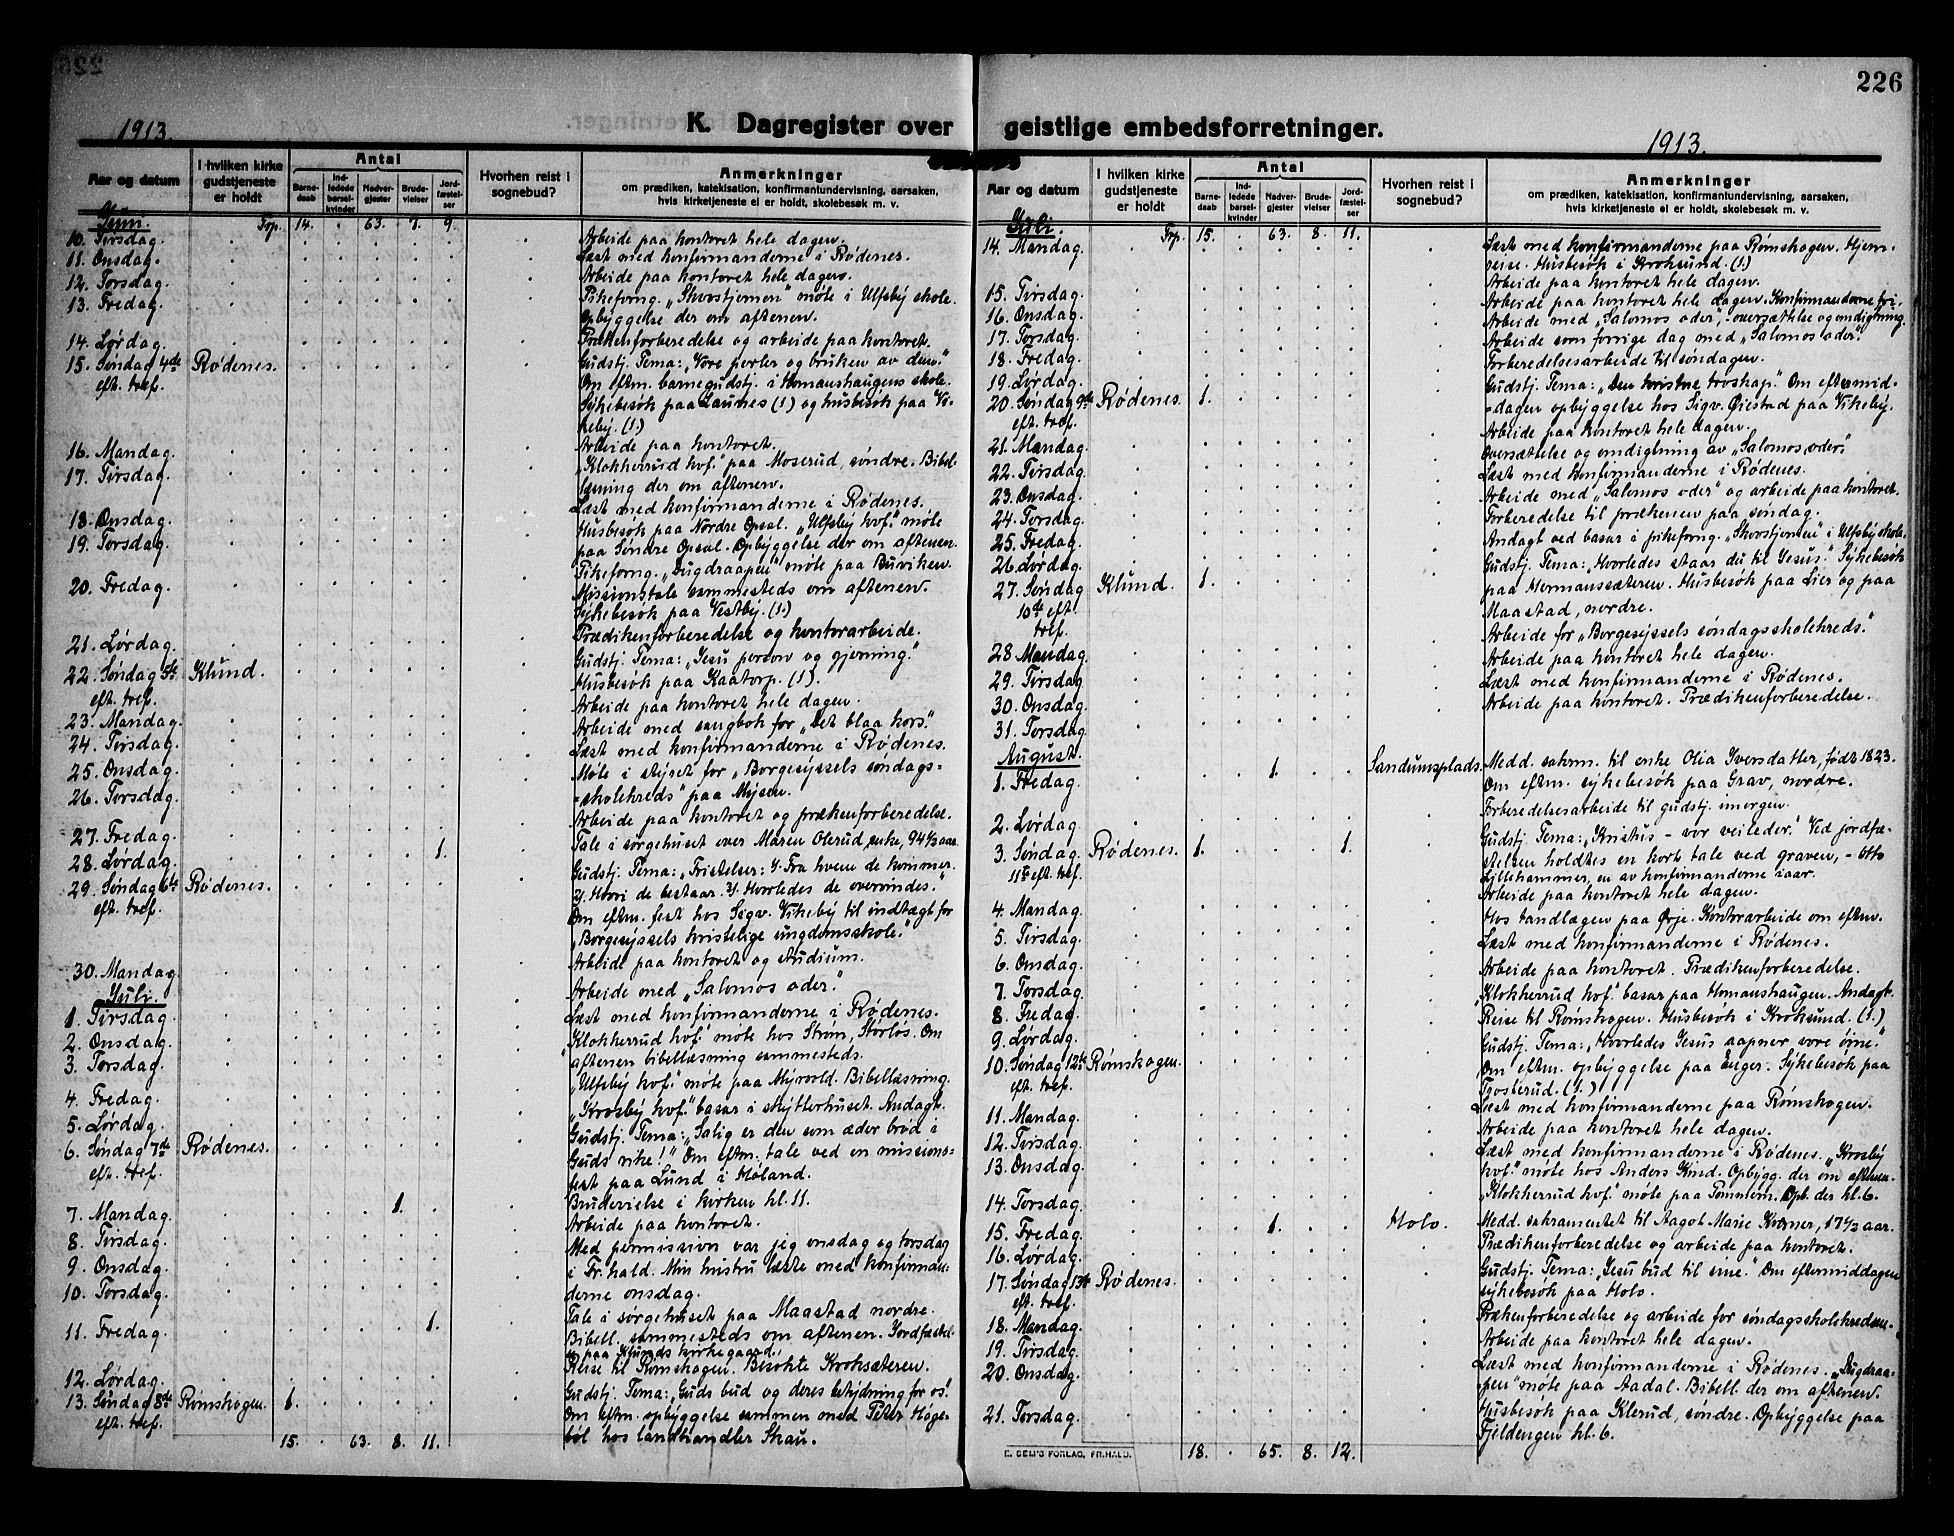 226
K. Dagregister over geistlige embedsforretninger.
1913.
Aar og datum
I hvilken kirke gudstjeneste er holdt
Antal
Barnedaab
Indledede barselkvinder
Nadvergjester
Brudevielser
Jordfæstelser
Hvorhen reist i sognebud?
Anmerkninger
om prædiken, katekisation, konfirmantundervisning, aarsaken,
hvis kirketjeneste ei er holdt, skolebesøk m. v.
Juni. Trp. 14. 63. 7. 9.
10. Tirsdag. Arbeide paa kontoret hele dagen.
11. Onsdag. Læst med konfirmanderne i Rødenes.
12. Torsdag. Arbeide paa kontoret hele dagen.
13. Fredag. Pikeforng. „Skovstjernen" møte i Ulfsby skole.
Opbyggelse der om aftenen.
14. Lørdag. Prækenforberedelse og arbeide paa kontoret.
15. Søndag 4de eft. tref. Rødenes. Gudstj. Tema: „Vore perler og bruken av dem."
Om eftm. barnegudstj. i Homanshaugens skole.
Sykebesøk paa (1) og husbesøk paa Vi-
keby. (1.)
16. Mandag. Arbeide paa kontoret.
17. Tirsdag. „Klokkerud kvf." paa Moserud, søndre. Bibel-
læsning der om aftenen.
18. Onsdag. Læst med konfirmanderne i Rødenes.
19. Torsdag. Husbesøk paa Nordre Opsal. „Ulfsby kvf." møte
paa Søndre Opsal. Opbyggelse der om aftenen.
20. Fredag. Pikeforng. „Dugdraapen" møte paa Buviken.
Missionstale sammesteds om aftenen.
Sykebesøk paa Vestby. (1.)
21. Lørdag. Prædikenforberedelse og kontorarbeide.
22. Søndag 5te eft. tref. Klund. Gudstj. Tema: „Jesu person og gjerning."
Husbesøk paa Kaatorp. (1).
23. Mandag. Arbeide paa kontoret hele dagen.
24. Tirsdag. Arbeide med sangbok for „Det blaa kors."
25. Onsdag. Læst med konfirmanderne i Rødenes.
26. Torsdag. Møte i styret for „Borgesyssels søndags-
-skolekreds" paa Mysen.
27. Fredag. Arbeide paa kontoret og prækenforberedelse.
28. Lørdag. 1. Tale i sørgehuset over Maren Olerud, enke, 94½ aar.
29. Søndag 6te eft. tref. Rødenes. Gudstj. Tema: „Fristelser: 1/ Fra hvem de kommer.
2/ Hvori de bestaar. 3/ Hvorledes de overvindes."
Om eftm. fest hos Sigv. Vikeby til indtægt for
„Borgesyssels kristelige ungdomsskole."
30. Mandag. Arbeide paa kontoret og studium.
Juli.
1. Tirsdag. Arbeide med „Salomos oder".
2. Onsdag. Læst med konfirmanderne i Rødenes.
3. Torsdag. „Klokkerrud kvf." møte hos Strøm, Storløs. Om
aftenen bibellæsning sammesteds.
4. Fredag. „Ulfsby kvf." møte paa Myrvold. Bibellæsning.
5. Lørdag. „Krosby kvf." basar i skytterhuset. Andagt.
6. Søndag 7de eft. tref. Rødenes. Gudstj. Tema: „Salig er den som æder brød i
Guds rike!" Om eftm. tale ved en missions-
fest paa Lund i Høland.
7. Mandag. 1. Brudevielse i kirken kl. 11.
8. Tirsdag. Arbeide paa kontoret.
9. Onsdag. Med permission var jeg onsdag og torsdag
10. Torsdag. i Fr.hald. Min hustru læste med konfirman-
derne onsdag.
11. Fredag. 1. Tale i sørgehuset paa Maastad nordre.
Bibell. sammesteds om aftenen. Jordfæstel-
se paa Klunds kirkegaard.
12. Lørdag. Reise til Rømskogen. Besøkte Kroksæteren.
13. Søndag 8de eft. tref. Rømskogen. 1. Gudstj. Tema: „Guds bud og deres betydning for os."
Om eftm. opbyggelse sammen med Peter Høge-
bøl hos landhandler Skau.
15. 63. 8. 11.
1913.
Aar og datum
I hvilken kirke gudstjeneste er holdt
Antal
Barnedaab
Indledede barselkvinder
Nadvergjester
Brudevielser
Jordfæstelser
Hvorhen reist i sognebud?
Anmerkninger
om prædiken, katekisation, konfirmantundervisning, aarsaken,
hvis kirketjeneste ei er holdt, skolebesøk m. v.
Juli. Trp. 15. 63. 8. 11.
14. Mandag. Læst med konfirmanderne paa Rømskogen. Hjem-
reise. Husbesøk i Kroksund. (1.)
15. Tirsdag. Arbeide paa kontoret hele dagen.
16. Onsdag. Arbeide paa kontoret hele dagen. Konfirmanderne fri.
17. Torsdag. Arbeide med „Salomos oder", - oversættelse og omdigtning.
18. Fredag. Arbeide som forrige dag med „Salomos oder".
19. Lørdag. Forberedelsesarbeide til søndagen.
20. Søndag 9de eft. tref. Rødenes. 1. Gudstj. Tema: „Den kristne troskap." Om eftermid-
-dagen opbyggelse hos Sigv. Øiestad paa Vikeby.
21. Mandag. Arbeide paa kontoret hele dagen.
22. Tirsdag. Oversættelse og omdigtning av „Salomos oder".
23. Onsdag. Læst med konfirmanderne i Rødenes.
24. Torsdag. Arbeide med „Salomos oder" og arbeide paa kontoret.
25. Fredag. Forberedelse til prækenen paa søndag.
26. Lørdag. Andagt ved basar i pikeforng. „Skovstjernen" i Ulfsby skole.
27. Søndag 10de eft. tref. Klund. 1. Gudstj. Tema: „Hvorledes staar du til Jesus." Sykebesøk
paa Hermanssæteren. Husbesøk paa Lier og paa
Maastad, nordre.
28. Mandag. Arbeide for „Borgesyssels søndagsskolekreds."
29. Tirsdag Arbeide paa kontoret hele dagen.
30. Onsdag. Læst med konfirmanderne i Rødenes.
31. Torsdag Arbeide paa kontoret. Prædikenforberedelse.
August.
1. Fredag. 1. Sandumsplads. Medd. sakrm. til enke Olia Iversdatter, født 1823.
Om eftm. sykebesøk paa Grav, nordre.
2. Lørdag. Forberedelsesarbeide til gudstj. imorgen.
3. Søndag 11te eft. tref. Rødenes. 1. 1. Gudstj. Tema: „Kristus - vor veileder." Ved jordfæ-
stelsen holdtes en kort tale ved graven, - Otto
Lillehammer, en av konfirmanderne iaar.
4. Mandag. Arbeide paa kontoret hele dagen.
5. Tirsdag. Hos tandlægen paa Ørje. Kontorarbeide om eftm.
6. Onsdag. Læst med konfirmanderne i Rødenes.
7. Torsdag. Arbeide paa kontoret. Prædikenforberedelse.
8. Fredag. „Klokkerrud kvf." basar paa Homanshaugen. Andagt.
9. Lørdag. Reise til Rømskogen. Husbesøk i Kroksund. (1.)
10. Søndag 12te eft. tref. Rømskogen. Gudstj. Tema: „Hvorledes Jesus aapner vore øine."
Om eftm. opbyggelse paa Enger. Sykebesøk paa
Trosterud. (1.)
11. Mandag. Læst med konfirmanderne paa Rømskogen.
12. Tirsdag. Arbeide paa kontoret hele dagen.
13. Onsdag. Læst med konfirmanderne i Rødenes. „Krosby
kvf." møte hos Anders Kind. Opbygg. der om aftenen.
14. Torsdag. „Klokkerrud kvf." møte paa Tommern. Opb. der kl. 6.
15. Fredag. 1. Holo. Medd. sakramentet til Aagot Marie Kverner, 17½ aar.
16. Lørdag. Prædikenforberedelse og arbeide paa kontoret.
17. Søndag 13de eft. tref. Rødenes. Gudstj. Tema: „Jesu bud til sine." Om eftermiddagen
sykebesøk paa Holo.
18. Mandag. Prækenforberedelse og arbeide for søndagsskolekredsen.
19. Tirsdag. Arbeide paa kontoret hele dagen.
20. Onsdag. Læst med konfirmanderne i Rødenes. „Dugdraa-
pen" møte paa Aadal. Bibell. der om aftenen.
21. Torsdag. Husbesøk paa Klerud, søndre. Opbyggelse paa
Fjeldengen kl. 6.
E. SEM'S FORLAG, FR.HALD. 18. 65. 8. 12.